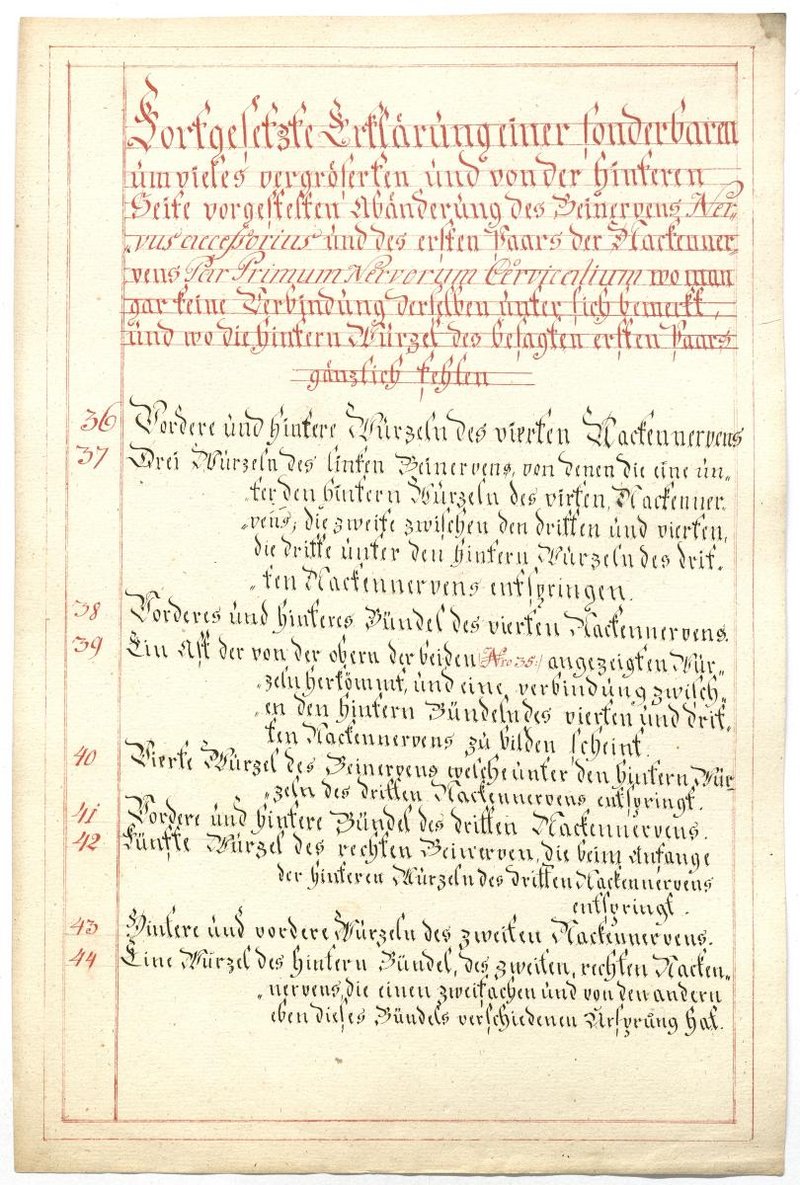 Fortgesetzte Erklärung einer sonderbaren
um vieles vergröserten und von der hinteren
Seite vorgestelten Abänderung des Beinervens Ner„
„vus accessorius und des ersten Paars der Nackenner„
vens Par Primum Nervorum Cervicalium wo man
gar keine Verbindung derselben unter sich bemerkt,
und wo die hintern Würzel des besagten ersten Paars
gänzlich fehlen
36 Vordere und hintere Würzeln des vierten Nackennervens
37 Drei Würzeln des linken Beinervens, von denen die eine un„
„ter den hintern Würzeln des virten, Nackenner„
„vens, die zweite zwischen den dritten und vierten,
die dritte unter den hintern Würzeln des drit„
„ten Nackennervens entspringen.
38 Vorderes und hinteres Bündel des vierten Nackennervens.
39 Ein Ast der von der obern der beiden (Nro 35:) angezeigten Wür„
„zeln herkömmt, und eine verbindung zwisch„
„en den hintern Bündeln des vierten und drit„
„ten Nackennervens zu bilden scheint.
40 Vierte Würzel des Beinervens welche unter den hintern Wür„
„zeln des dritten Nackennervens entspringt.
41 Vordere und hintere Bündel des dritten Nackennervens.
42 Fünfte Würzel des rechten Beinerven, die beim Anfange
der hinteren Würzeln des dritten Nackennervens
entspringt.
43 Hintere und vordere Würzeln des zweiten Nackennervens.
44 Eine Würzel des hintern Bündel, des zweiten, rechten Nacken„
„nervens, die einen zweifachen und von den andern
eben dieses Bündels verschiedenen Ursprung hat.